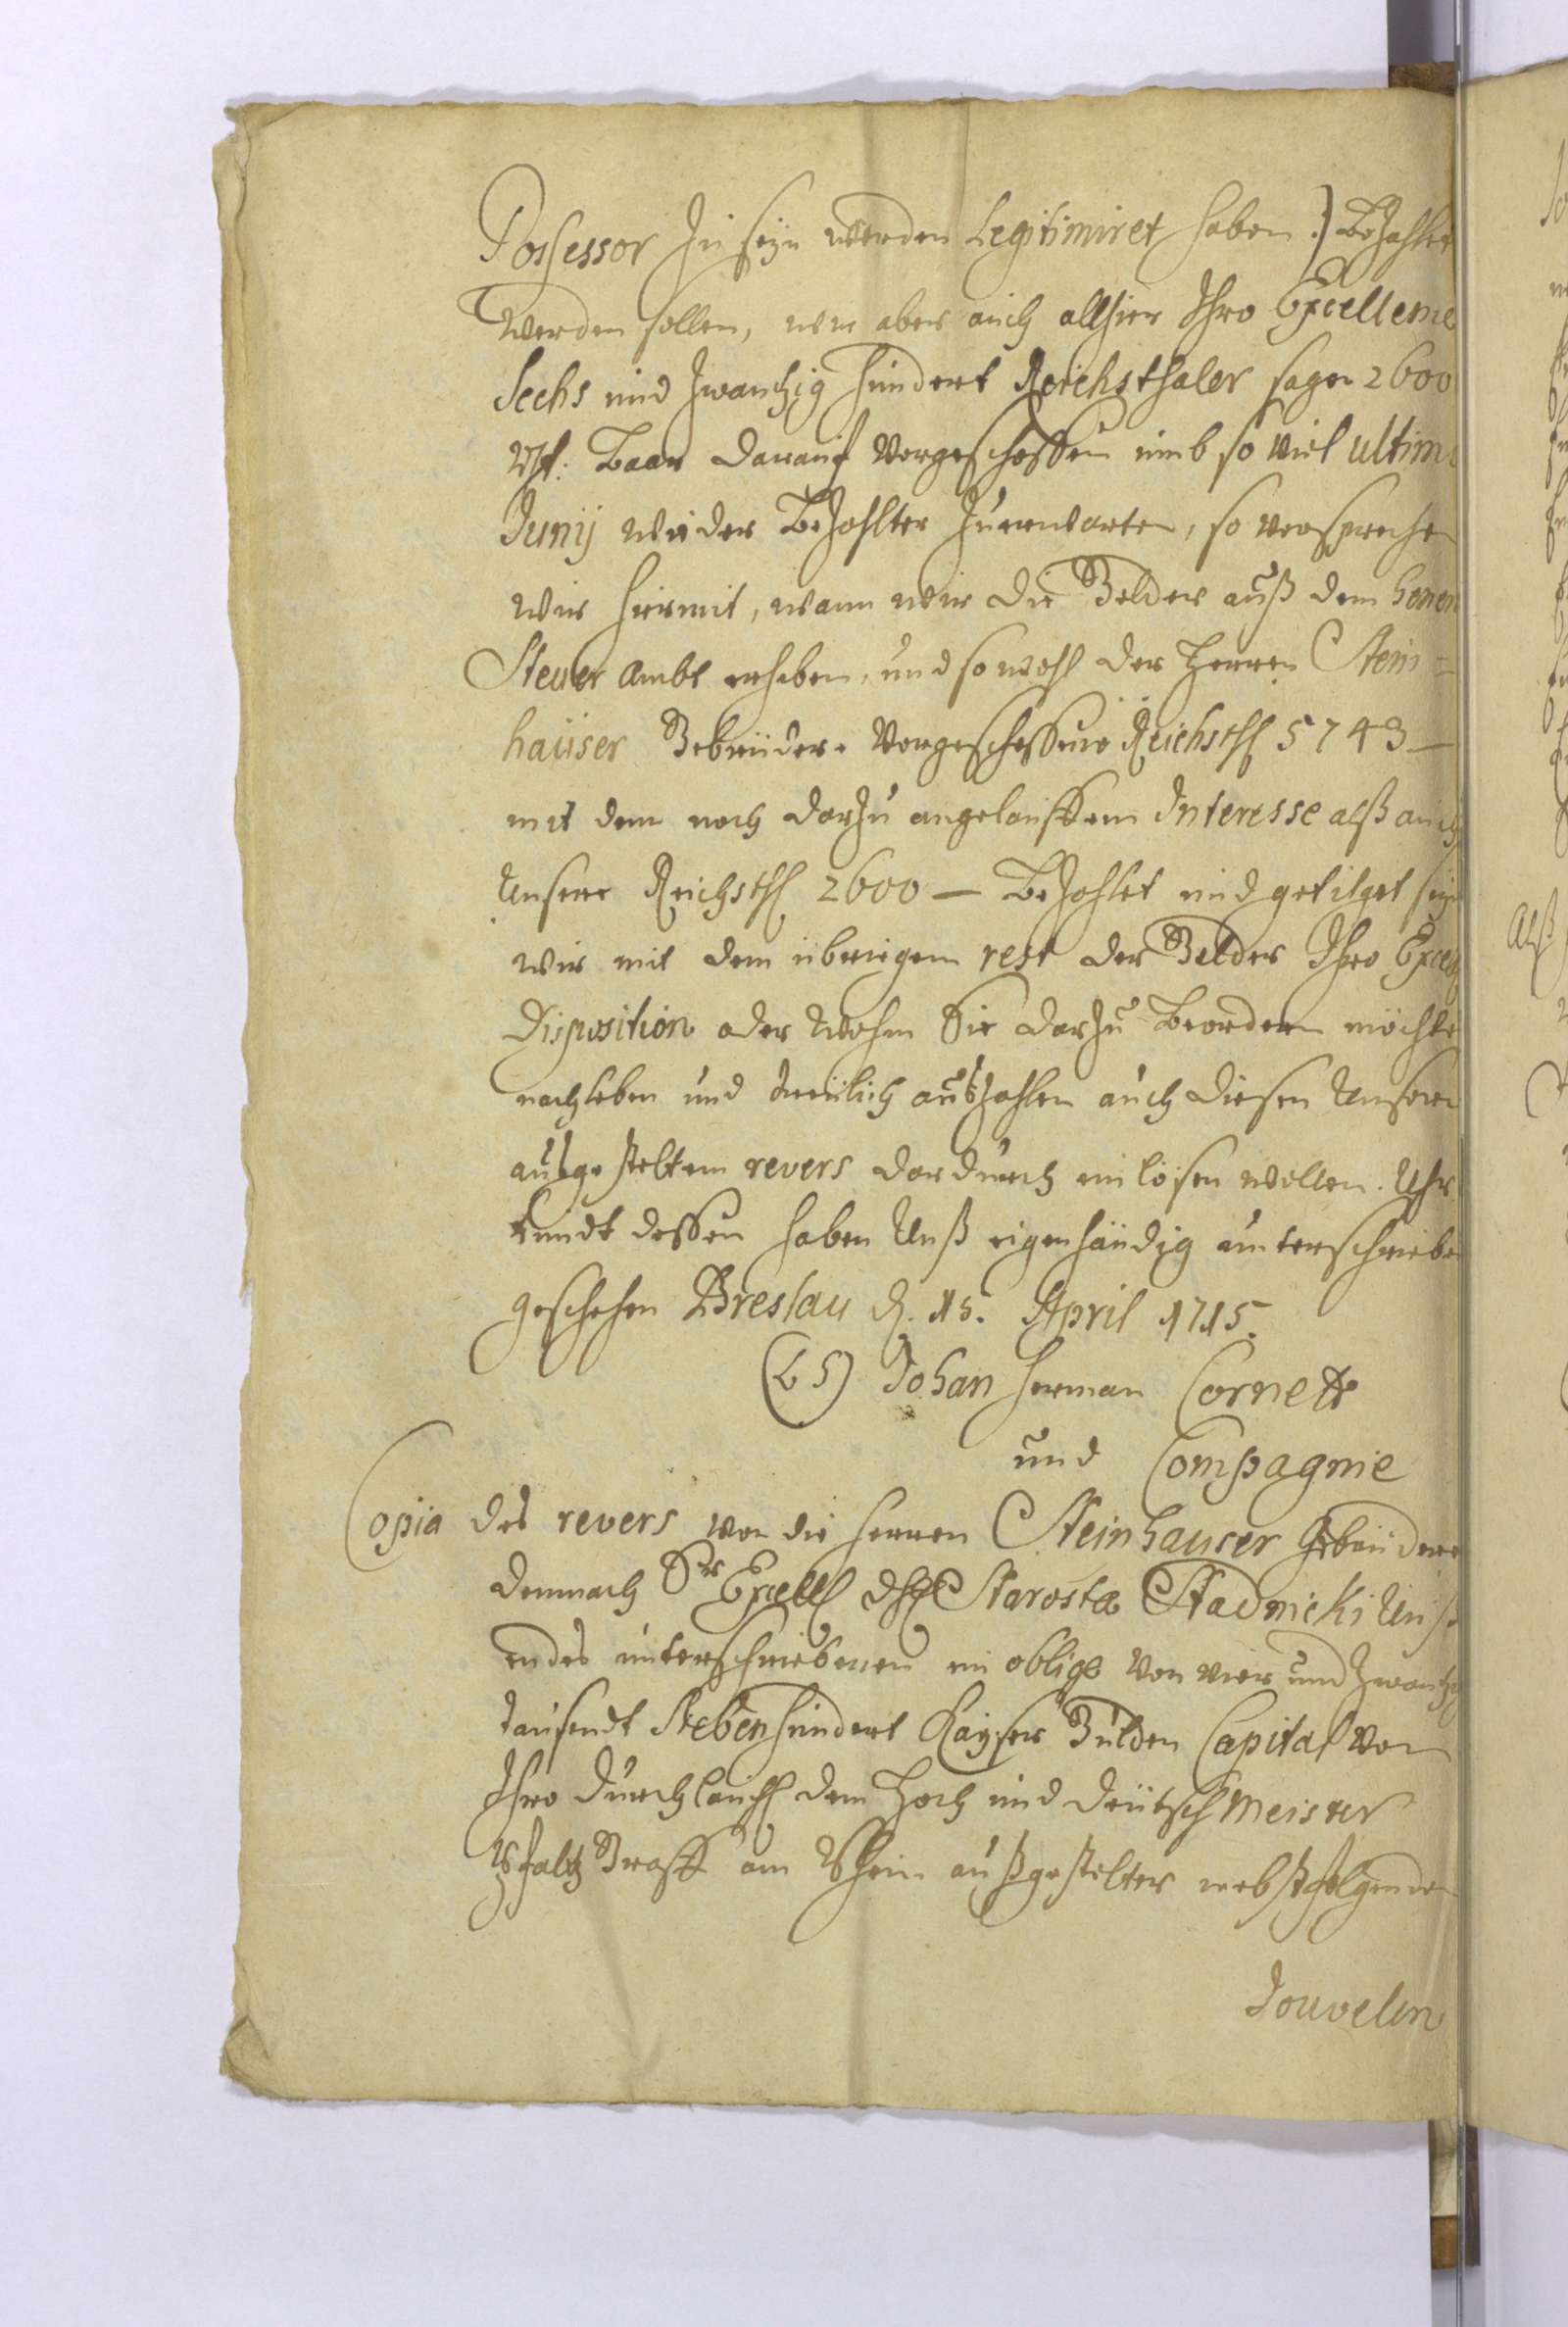 Possessor zu seyn werden Legitimiret haben.) Bezahlet
werden sollen, wir aber auch allhier Ihro Excellence
Sechs und zwanzig hundert Reichsthaler sage 2600
Rth: Baar darauf vorgeschossen umb so viel ultim
Junij wieder Bezahlter zuerwarten, so versprechen
wir hiermit, wann wir die Gelder auß dem
Steuer Ambt erheben, und so wohl der Herren Stein=
haüser Gebrüder. Vorgeschossene Reichsth 5743 —
mit dem noch darzu angelauffenen Interesse alß auch
Unsere Reichsth 2600 — Bezahlet und getilget seyn
wir mit dem übrigen rest der Gelder Ihro Excell
Disposition oder wohin Sie darzu Beordern möchte
nachleben und treülich außzahlen auch diesen Unsern
außgestelten revers dardurch einlösen wollen. Uhr
kundt dessen haben Unß eigenhändig unterschrieben
geschehen Breslau d. 15. April 1715.
(LS) Johan Herman Cornett
und Compagnie
Copia des revers von die Herren Steinhauser Gebrüdere
demnach Sr Excell Starosta Stadnicki Unß
endes unterschriebenen ein oblig von vier und zwantzig
tausendt Siebenhundert Kayser Gulden Capital von
Ihro Durchlaucht dem Hoch und Deütsch Meister
Pfaltz Graff am Rhein außgestelter nebst folgenden
Jouvelen